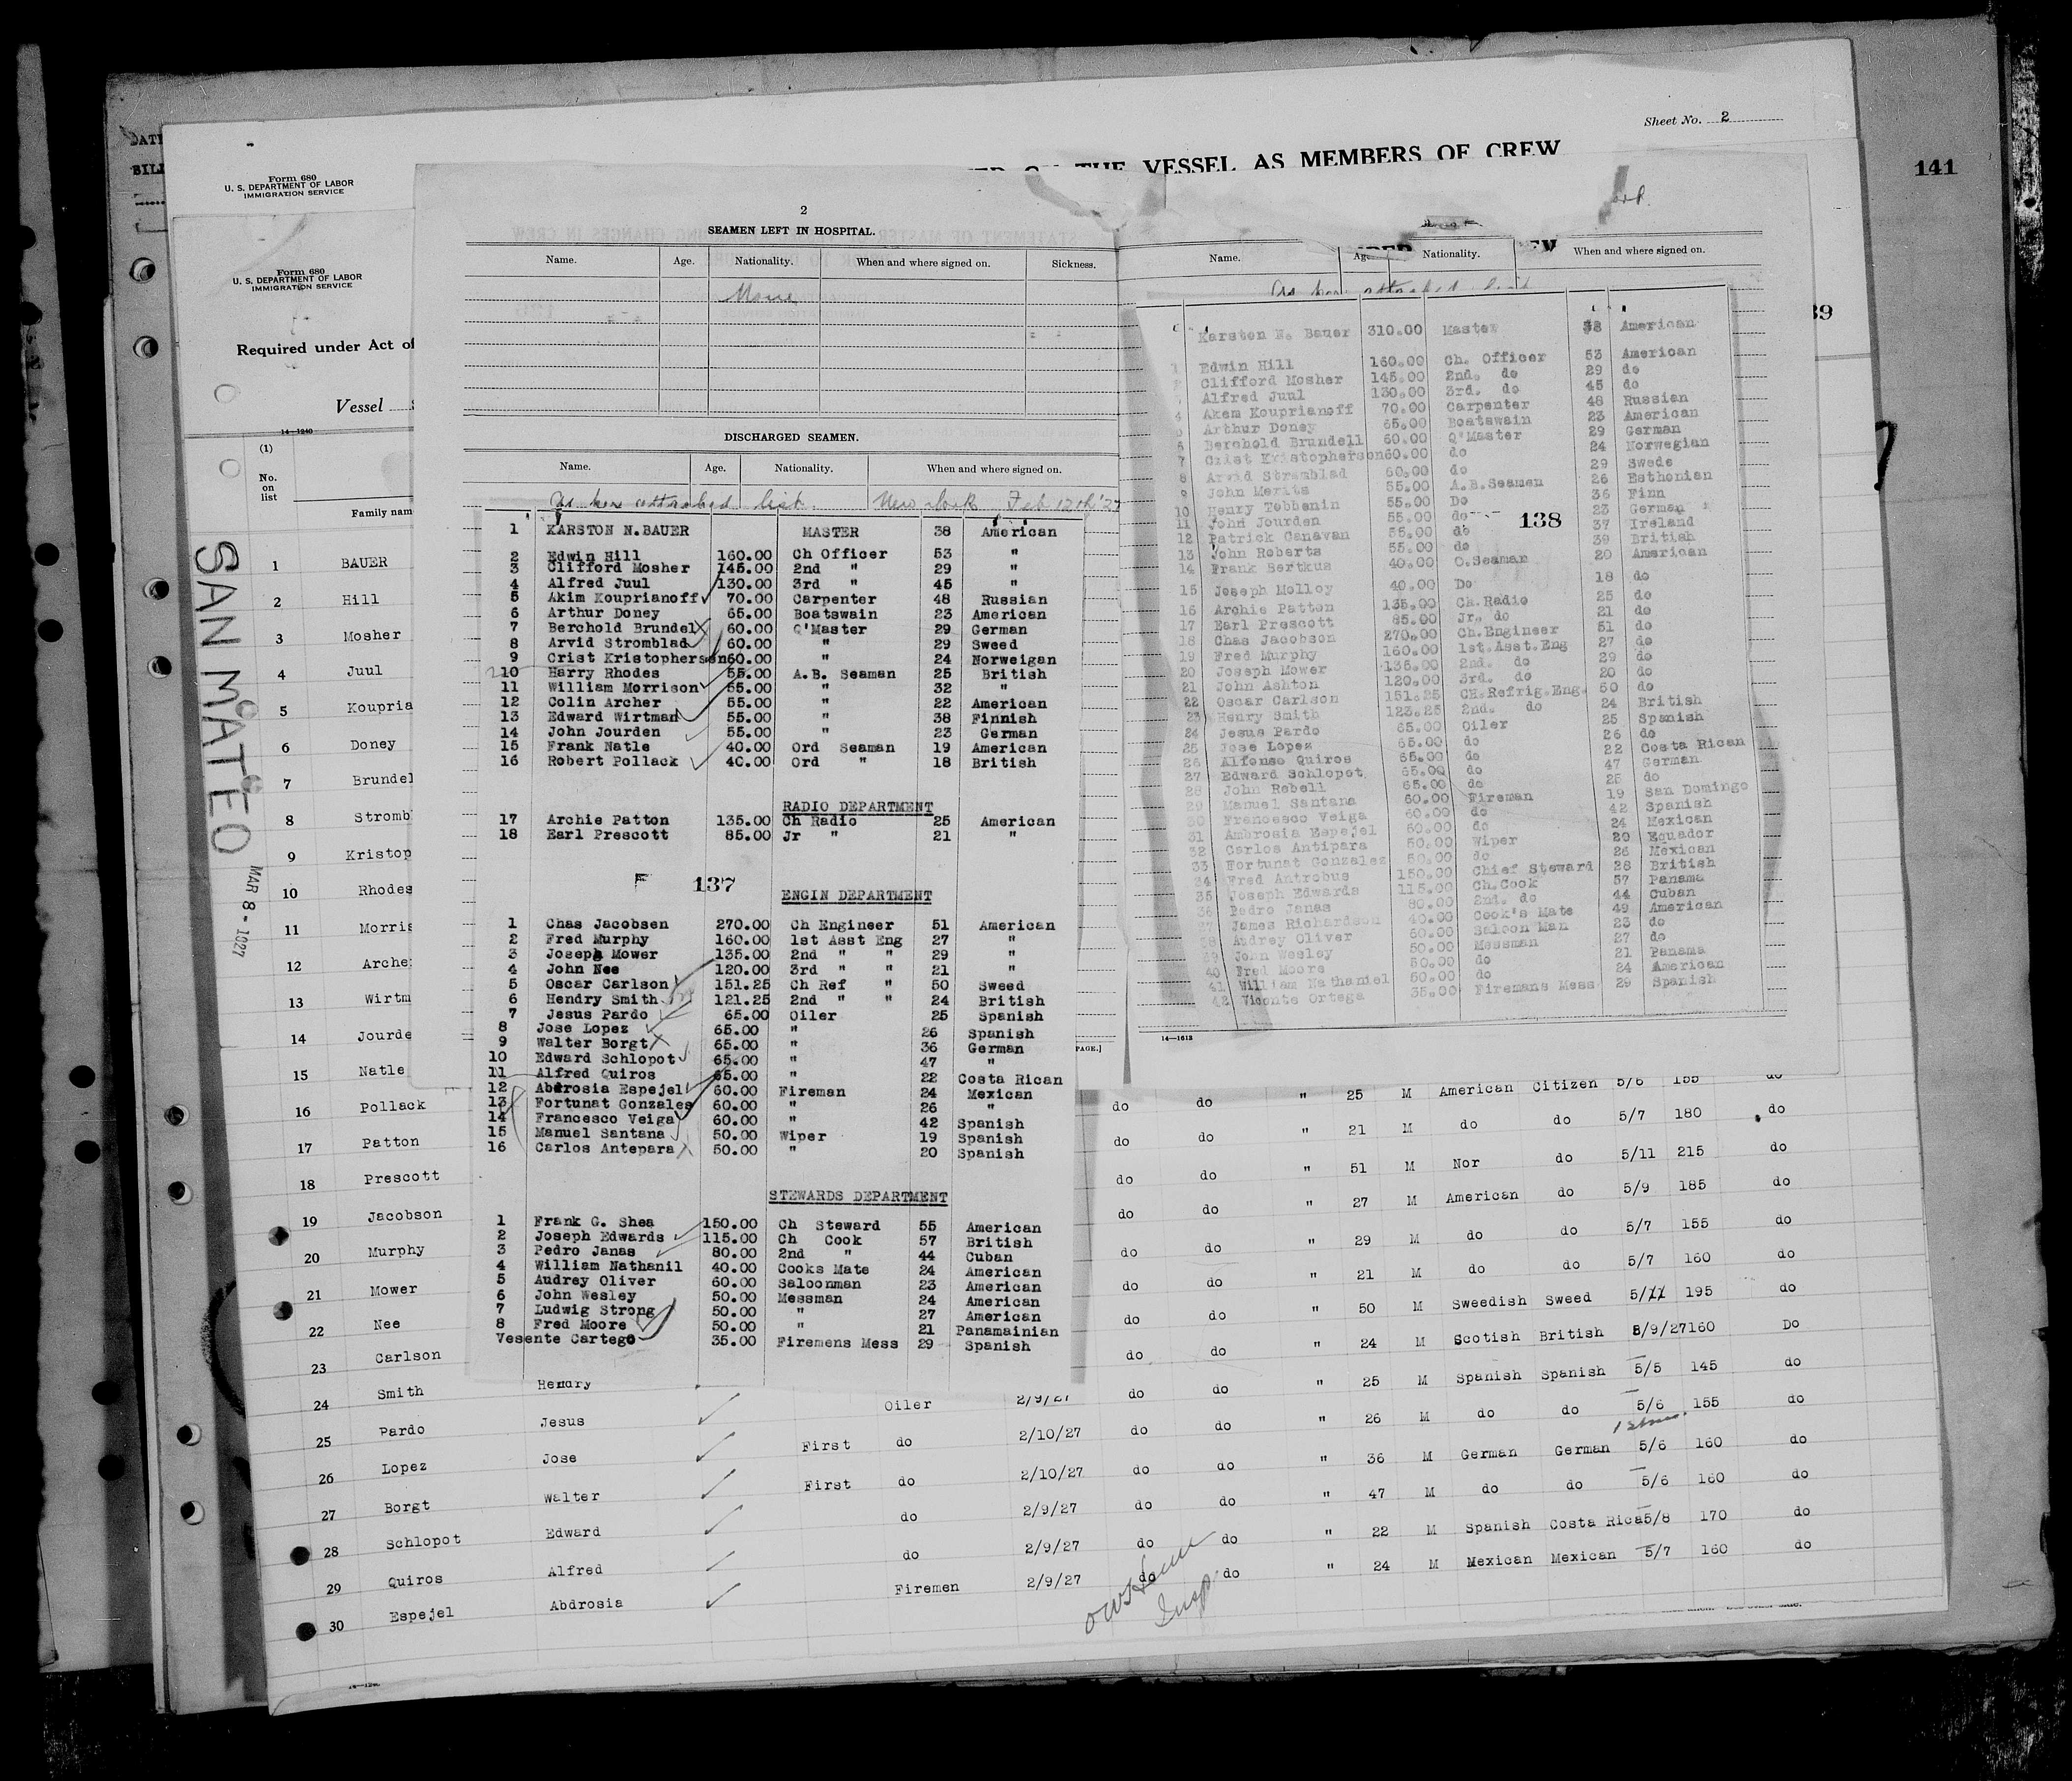 Sheet No. 2
THE VESSEL AS MEMBERS OF CREW
141
Form 680
U. S. DEPARTMENT OF LABOR
IMMIGRATION SERVICE
Form 680
U. S. DEPARTMENT OF LABOR
IMMIGRATION SERVICE
Required under Act of
Vessel
14—1240
(1)
No. on list
Family nam
SAN MATEO
MAR 8 - 1927
1 BAUER
2 Hill
3 Mosher
4 Juul
5 Koupria
6 Doney
7 Brundel
8 Stromb
9 Kristop
10 Rhodes
11 Morris
12 Arche
13 Wirtm
14 Jourde
15 Natle
16 Pollack
17 Patton
18 Prescott
19 Jacobson
20 Murphy
21 Mower
22 Nee
23 Carlson
24 Smith Hendry
25 Pardo Jesus Oiler 2/9/27
26 Lopez Jose First do 2/10/27
27 Borgt Walter First do 2/10/27
28 Schlopot Edward do 2/9/27
29 Quiros Alfred do 2/9/27
30 Espejel Abdrosia Firemen 2/9/27
2
SEAMEN LEFT IN HOSPITAL.
Name. Age. Nationality. When and where signed on. Sickness.
None
DISCHARGED SEAMEN.
Name. Age. Nationality. When and where signed on.
As per attached list. New York Feb 12th '27
1 KARSTON N.BAUER MASTER 38 American
2 Edwin Hill 160.00 Ch Officer 53 "
3 Clifford Mosher 145.00 2nd " 29 "
4 Alfred Juul 130.00 3rd " 45 "
5 Akim Kouprianoff 70.00 Carpenter 48 Russian
6 Arthur Doney 65.00 Boatswain 23 American
7 Berchold Brundel 60.00 Q'Master 29 German
8 Arvid Stromblad 60.00 " 29 Sweed
9 Crist Kristopherson 60.00 " 24 Norweigan
10 Harry Rhodes 55.00 A.B. Seaman 25 British
11 William Morrison 55.00 " 32 "
12 Colin Archer 55.00 " 22 American
13 Edward Wirtman 55.00 " 38 Finnish
14 John Jourden 55.00 " 23 German
15 Frank Natle 40.00 Ord Seaman 19 American
16 Robert Pollack 40.00 Ord " 18 British
RADIO DEPARTMENT
17 Archie Patton 135.00 Ch Radio 25 American
18 Earl Prescott 85.00 Jr " 21 "
F 137
ENGIN DEPARTMENT
1 Chas Jacobsen 270.00 Ch Engineer 51 American
2 Fred Murphy 160.00 1st Asst Eng 27 "
3 Joseph Mower 135.00 2nd " " 29 "
4 John Nee 120.00 3rd " " 21 "
5 Oscar Carlson 151.25 Ch Ref " 50 Sweed
6 Hendry Smith 121.25 2nd " " 24 British
7 Jesus Pardo 65.00 Oiler 25 Spanish
8 Jose Lopez 65.00 " 26 Spanish
9 Walter Borgt 65.00 " 36 German
10 Edward Schlopot 65.00 " 47 "
11 Alfred Quiros 65.00 " 22 Costa Rican
12 Abdrosia Espejel 60.00 Fireman 24 Mexican
13 Fortunat Gonzales 60.00 " 26 "
14 Francesco Veiga 60.00 " 42 Spanish
15 Manuel Santana 50.00 Wiper 19 Spanish
16 Carlos Antepara 50.00 " 20 Spanish
STEWARDS DEPARTMENT
1 Frank G. Shea 150.00 Ch Steward 55 American
2 Joseph Edwards 115.00 Ch Cook 57 British
3 Pedro Janas 80.00 2nd " 44 Cuban
4 William Nathanil 40.00 Cooks Mate 24 American
5 Audrey Oliver 60.00 Saloonman 23 American
6 John Wesley 50.00 Messman 24 American
7 Ludwig Strong 50.00 " 27 American
8 Fred Moore 50.00 " 21 Panamainian
Vesente Cartego 35.00 Firemens Mess 29 Spanish
Name. Age. Nationality. When and where signed on.
As per attached list
Karsten N. Bauer 310.00 Master 38 American
1 Edwin Hill 160.00 Ch. Officer 53 American
2 Clifford Mosher 145.00 2nd. do 29 do
Alfred Juul 130.00 3rd. do 45 do
4 Akem Kouprianoff 70.00 Carpenter 48 Russian
5 Arthur Doney 65.00 Boatswain 23 American
6 Berchold Brundell 60.00 Q'Master 29 German
7 Crist Kristopherson 60.00 do 24 Norwegian
8 Arvid Stromblad 60.00 do 29 Swede
9 John Merits 55.00 A.B.Seaman 26 Esthonian
10 Henry Tobbenin 55.00 Do 36 Finn
11 John Jourden 55.00 do 23 German
138
12 Patrick Canavan 55.00 do 37 Ireland
13 John Roberts 55.00 do 39 British
14 Frank Bertkus 40.00 O.Seaman 20 American
15 Joseph Molloy 40.00 Do 18 do
16 Archie Patton 135.00 Ch.Radio 25 do
17 Earl Prescott 85.00 Jr. do 21 do
18 Chas Jacobson 270.00 Ch.Engineer 51 do
19 Fred Murphy 160.00 1st.Asst.Eng 27 do
20 Joseph Mower 135.00 2nd. do 29 do
21 John Ashton 120.00 3rd. do 20 do
22 Oscar Carlson 151.25 CH.Refrig.Eng. 50 do
23 Henry Smith 123.25 2nd. do 24 British
24 Jesus Pardo 65.00 Oiler 25 Spanish
25 Jose Lopez 65.00 do 26 do
26 Alfonso Quiros 65.00 do 22 Costa Rican
27 Edward Schlopot 65.00 do 47 German
28 John Robell 65.00 do 25 do
29 Manuel Santana 60.00 Fireman 19 San Domingo
30 Francesco Veiga 60.00 do 42 Spanish
31 Ambrosia Espejel 60.00 do 24 Mexican
32 Carlos Antipara 50.00 Wiper 20 Equador
33 Fortunat Gonzales 50.00 do 26 Mexican
34 Fred Antrobus 150.00 Chief Steward 28 British
35 Joseph Edwards 115.00 Ch.Cook 57 Panama
36 Pedro Janas 80.00 2nd. do 44 Cuban
37 James Richardson 40.00 Cook's Mate 49 American
38 Audrey Oliver 60.00 Saloon Man 23 do
39 John Wesley 50.00 Messman 27 do
40 Fred Moore 50.00 do 21 Panama
41 William Nathaniel 50.00 do 24 American
42 Vicente Ortega 35.00 Firemans Mess 29 Spanish
14—1613
PAGE.]
do do " 25 M American Citizen 5/6 155 do
do do " 21 M do do 5/7 180 do
do do " 51 M Nor do 5/11 215 do
do do " 27 M American do 5/9 185 do
do do " 29 M do do 5/7 155 do
do do " 21 M do do 5/7 160 do
do do " 50 M Swedish Sweed 5/11 195 do
do do " 24 M Scotish British 5/9/27 160 Do
do do " 25 M Spanish Spanish 5/5 145 do
do do " 26 M do do 5/6 155 do
do do " 36 M German German 5/6 160 do
do do " 47 M do do 5/6 160 do
do do " 22 M Spanish Costa Rica 5/8 170 do
do do " 24 M Mexican Mexican 5/7 160 do
Insp.